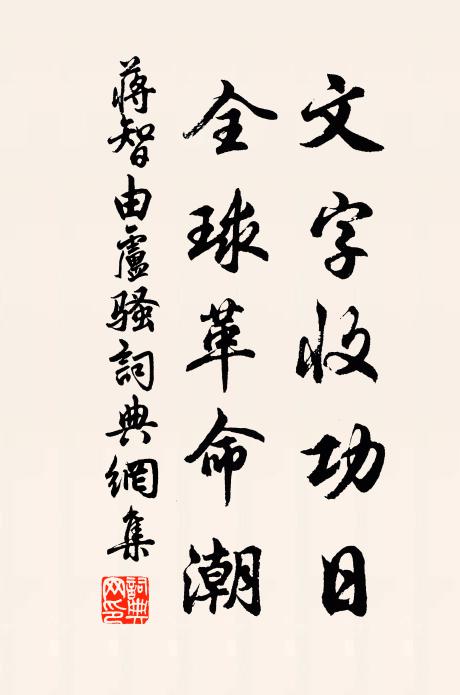 文字收功日
全球革命潮
蔣智由盧騷詞典網集
詞典网印